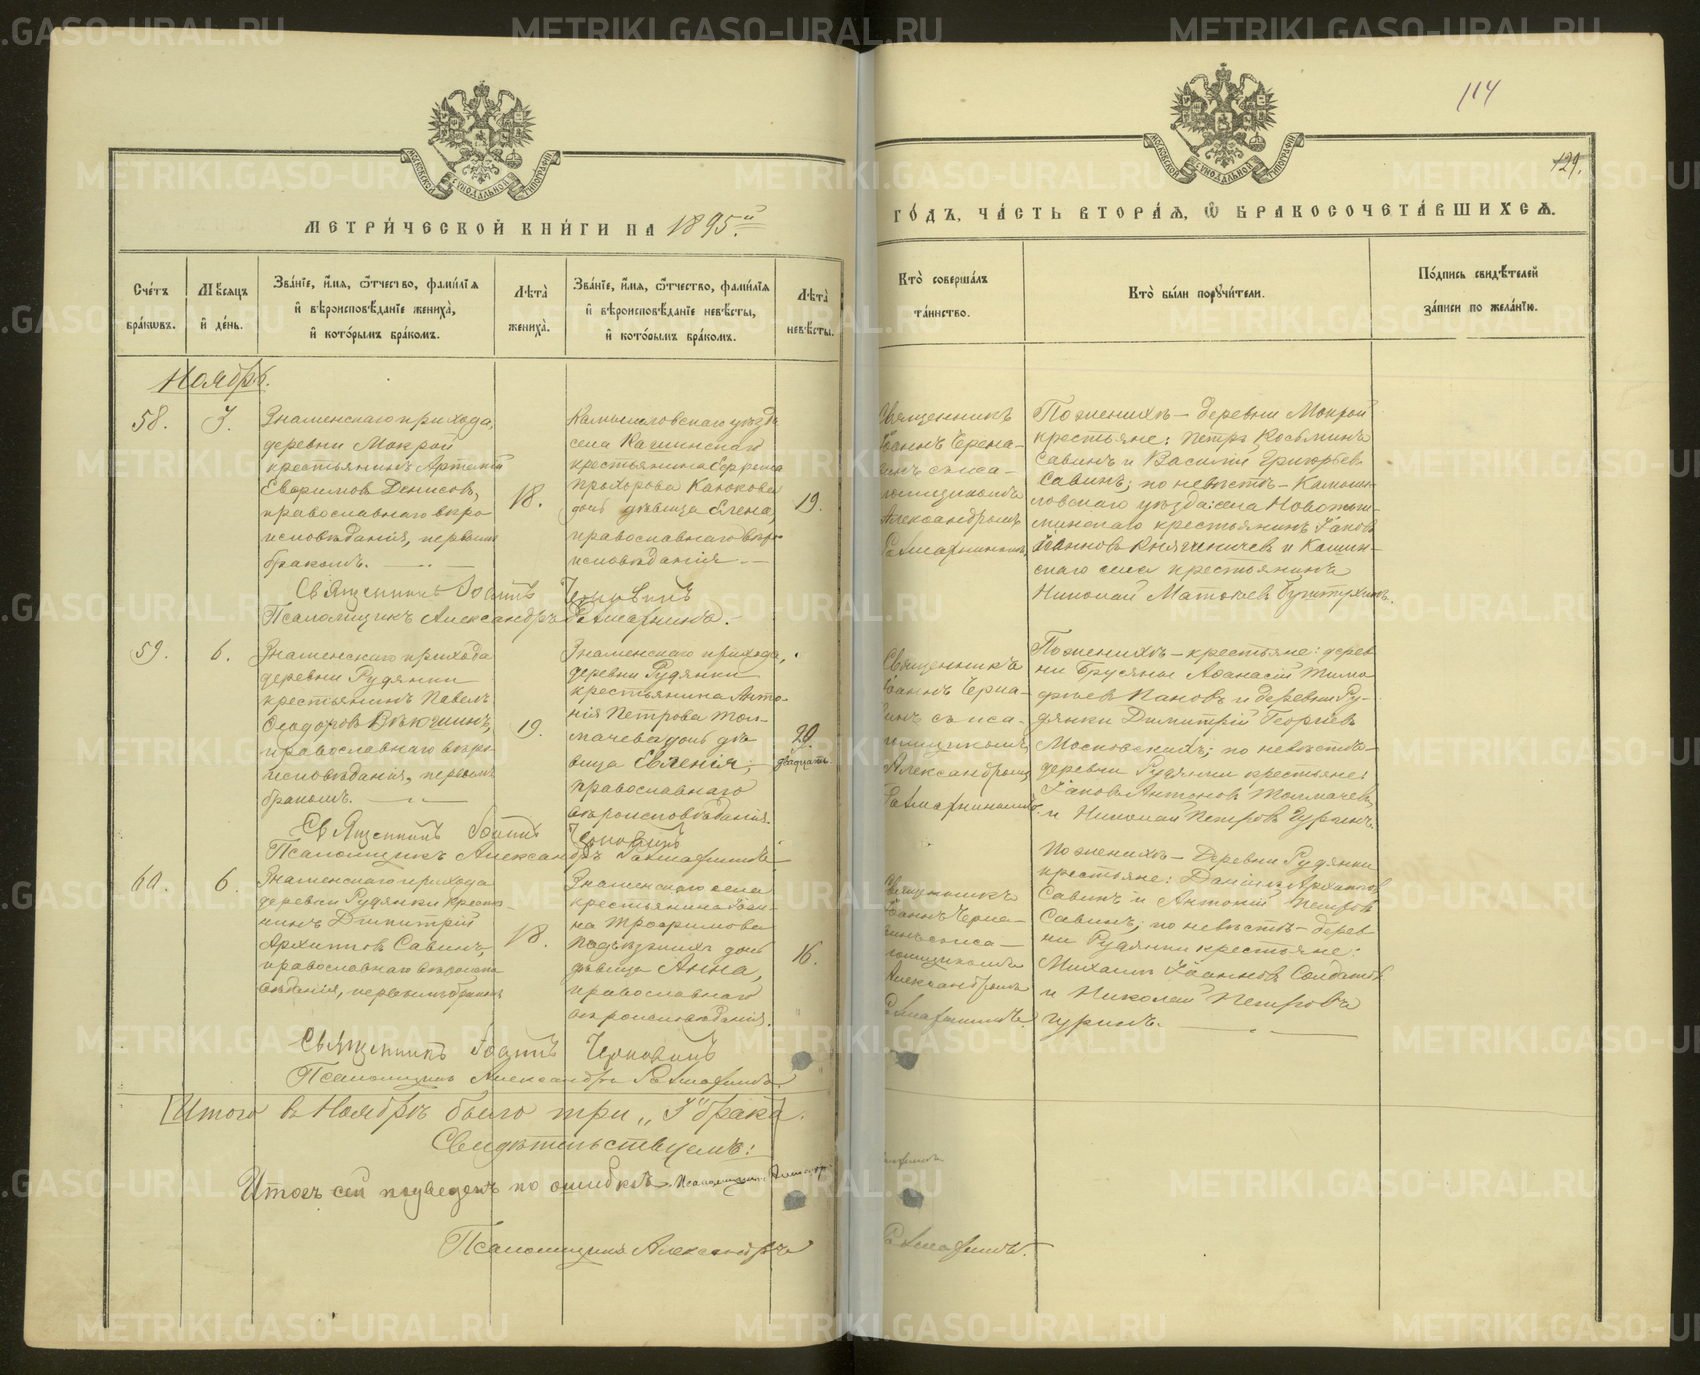 114
121.
МОСКОВСКОЙ СѶНОДАЛЬНОЙ ТИПОГРАФІИ
МОСКОВСКОЙ СѶНОДАЛЬНОЙ ТИПОГРАФІИ
МЕТРИ́ЧЕСКОЙ КНИ́ГИ НА 1895й
ГО́ДЪ, ЧА́СТЬ ВТОРА́Я, Ѽ БРАКОСОЧЕТА́ВШИХСЯ.
Сче́тъ бра́кωвъ.
Мѣ́сяцъ и҆ де́нь.
Зва́нїе, и҆́мя, ѻ҆́тчество, фами́лїя и҆ вѣроисповѣ́данїе жениха̀, и҆ кото́рымъ бра́комъ.
Лѣ́та̀ жениха̀.
Зва́нїе, и҆́мя, ѻ҆́тчество, фами́лїя и҆ вѣроисповѣ́данїе невѣ́сты, и҆ кото́рымъ бра́комъ.
Лѣ́та̀ невѣ́сты.
Кто̀ соверша́лъ та́инство.
Кто̀ бы́ли порꙋчи́тели.
По́дпись свидѣ́телей за́писи по жела́нїю.
Ноябрь.
58.
3.
Знаменскаго прихода,
деревни Мокрой
крестьянинъ Артемій
Евфимовъ Денисов,
православнаго вѣро
исповѣданія, первымъ
бракомъ.
18.
Камышловскаго уѣзда
села Кашинскаго
крестьянина
Прохорова
дочь дѣвица Елена,
православнаго вѣро
исповѣданія.
19.
Священникъ
Іоаннъ Черна-
винъ съ пса-
ломщикомъ
Александромъ
По женихѣ – деревни Мокрой
крестьяне: Петръ Косьминъ
Савинъ и Василій Григорьевъ
Савинъ; по невѣстѣ – Камыш-
ловскаго уѣзда: села Новопыш-
минскаго крестьянинъ Іаковъ
Іоанновъ и Кашин-
скаго села крестьянинъ
Николай
Священникъ Іоаннъ Чернавинъ
Псаломщикъ Александръ
59.
6.
Знаменскаго прихода
деревни Рудянки
крестьянинъ Павелъ
Ѳеодоровъ
православнаго вѣро
исповѣданія, первымъ
бракомъ.
19.
Знаменскаго прихода,
деревни Рудянки
крестьянина Анто-
нія Петрова Тол-
мачева дочь дѣ
вица Евгенія,
православнаго
вѣроисповѣданія.
20.
двадцать.
Священникъ
Іоаннъ Черна-
винъ съ пса-
ломщикомъ
Александромъ
По женихѣ – крестьяне: дерев
ни Брусяной Аѳанасій Тимо
фѣевъ Пановъ и деревни Ру-
дянки Димитрій Георгіевъ
Московскихъ; по невѣстѣ –
деревни Рудянки крестьяне:
Іаковъ Антоновъ Толмачевъ
и Николай Петровъ Гуринъ.
Священникъ Іоаннъ Чернавинъ
Псаломщикъ Александръ
60.
6.
Знаменскаго прихода
деревни Рудянки кресть-
янинъ Димитрій
Архиповъ Савинъ,
православнаго вѣроиспо
вѣданія, первымъ бракомъ
18.
Знаменскаго села
крестьянина Іоан-
на Трофимова
дочь
дѣвица Анна,
православнаго
вѣроисповѣданія.
16.
Священникъ
Іоаннъ Черна-
винъ съ пса-
ломщикомъ
Александромъ
По женихѣ – Деревни Рудянки
крестьяне: Даніилъ Архиповъ
Савинъ и Антоній Петровъ
Савинъ; по невѣстѣ – дерев
ни Рудянки крестьяне:
Михаилъ Іоанновъ Солдатовъ
и Николай Петровъ
Гуринъ.
Священникъ Іоаннъ Чернавинъ
Псаломщикъ Александръ
Итого въ Ноябрѣ было три „3" брака.
Свидѣтельствуемъ:
Итогъ сей подведенъ по ошибкѣ. Псаломщикъ
Псаломщикъ Александръ
METRIKI.GASO-URAL.RU